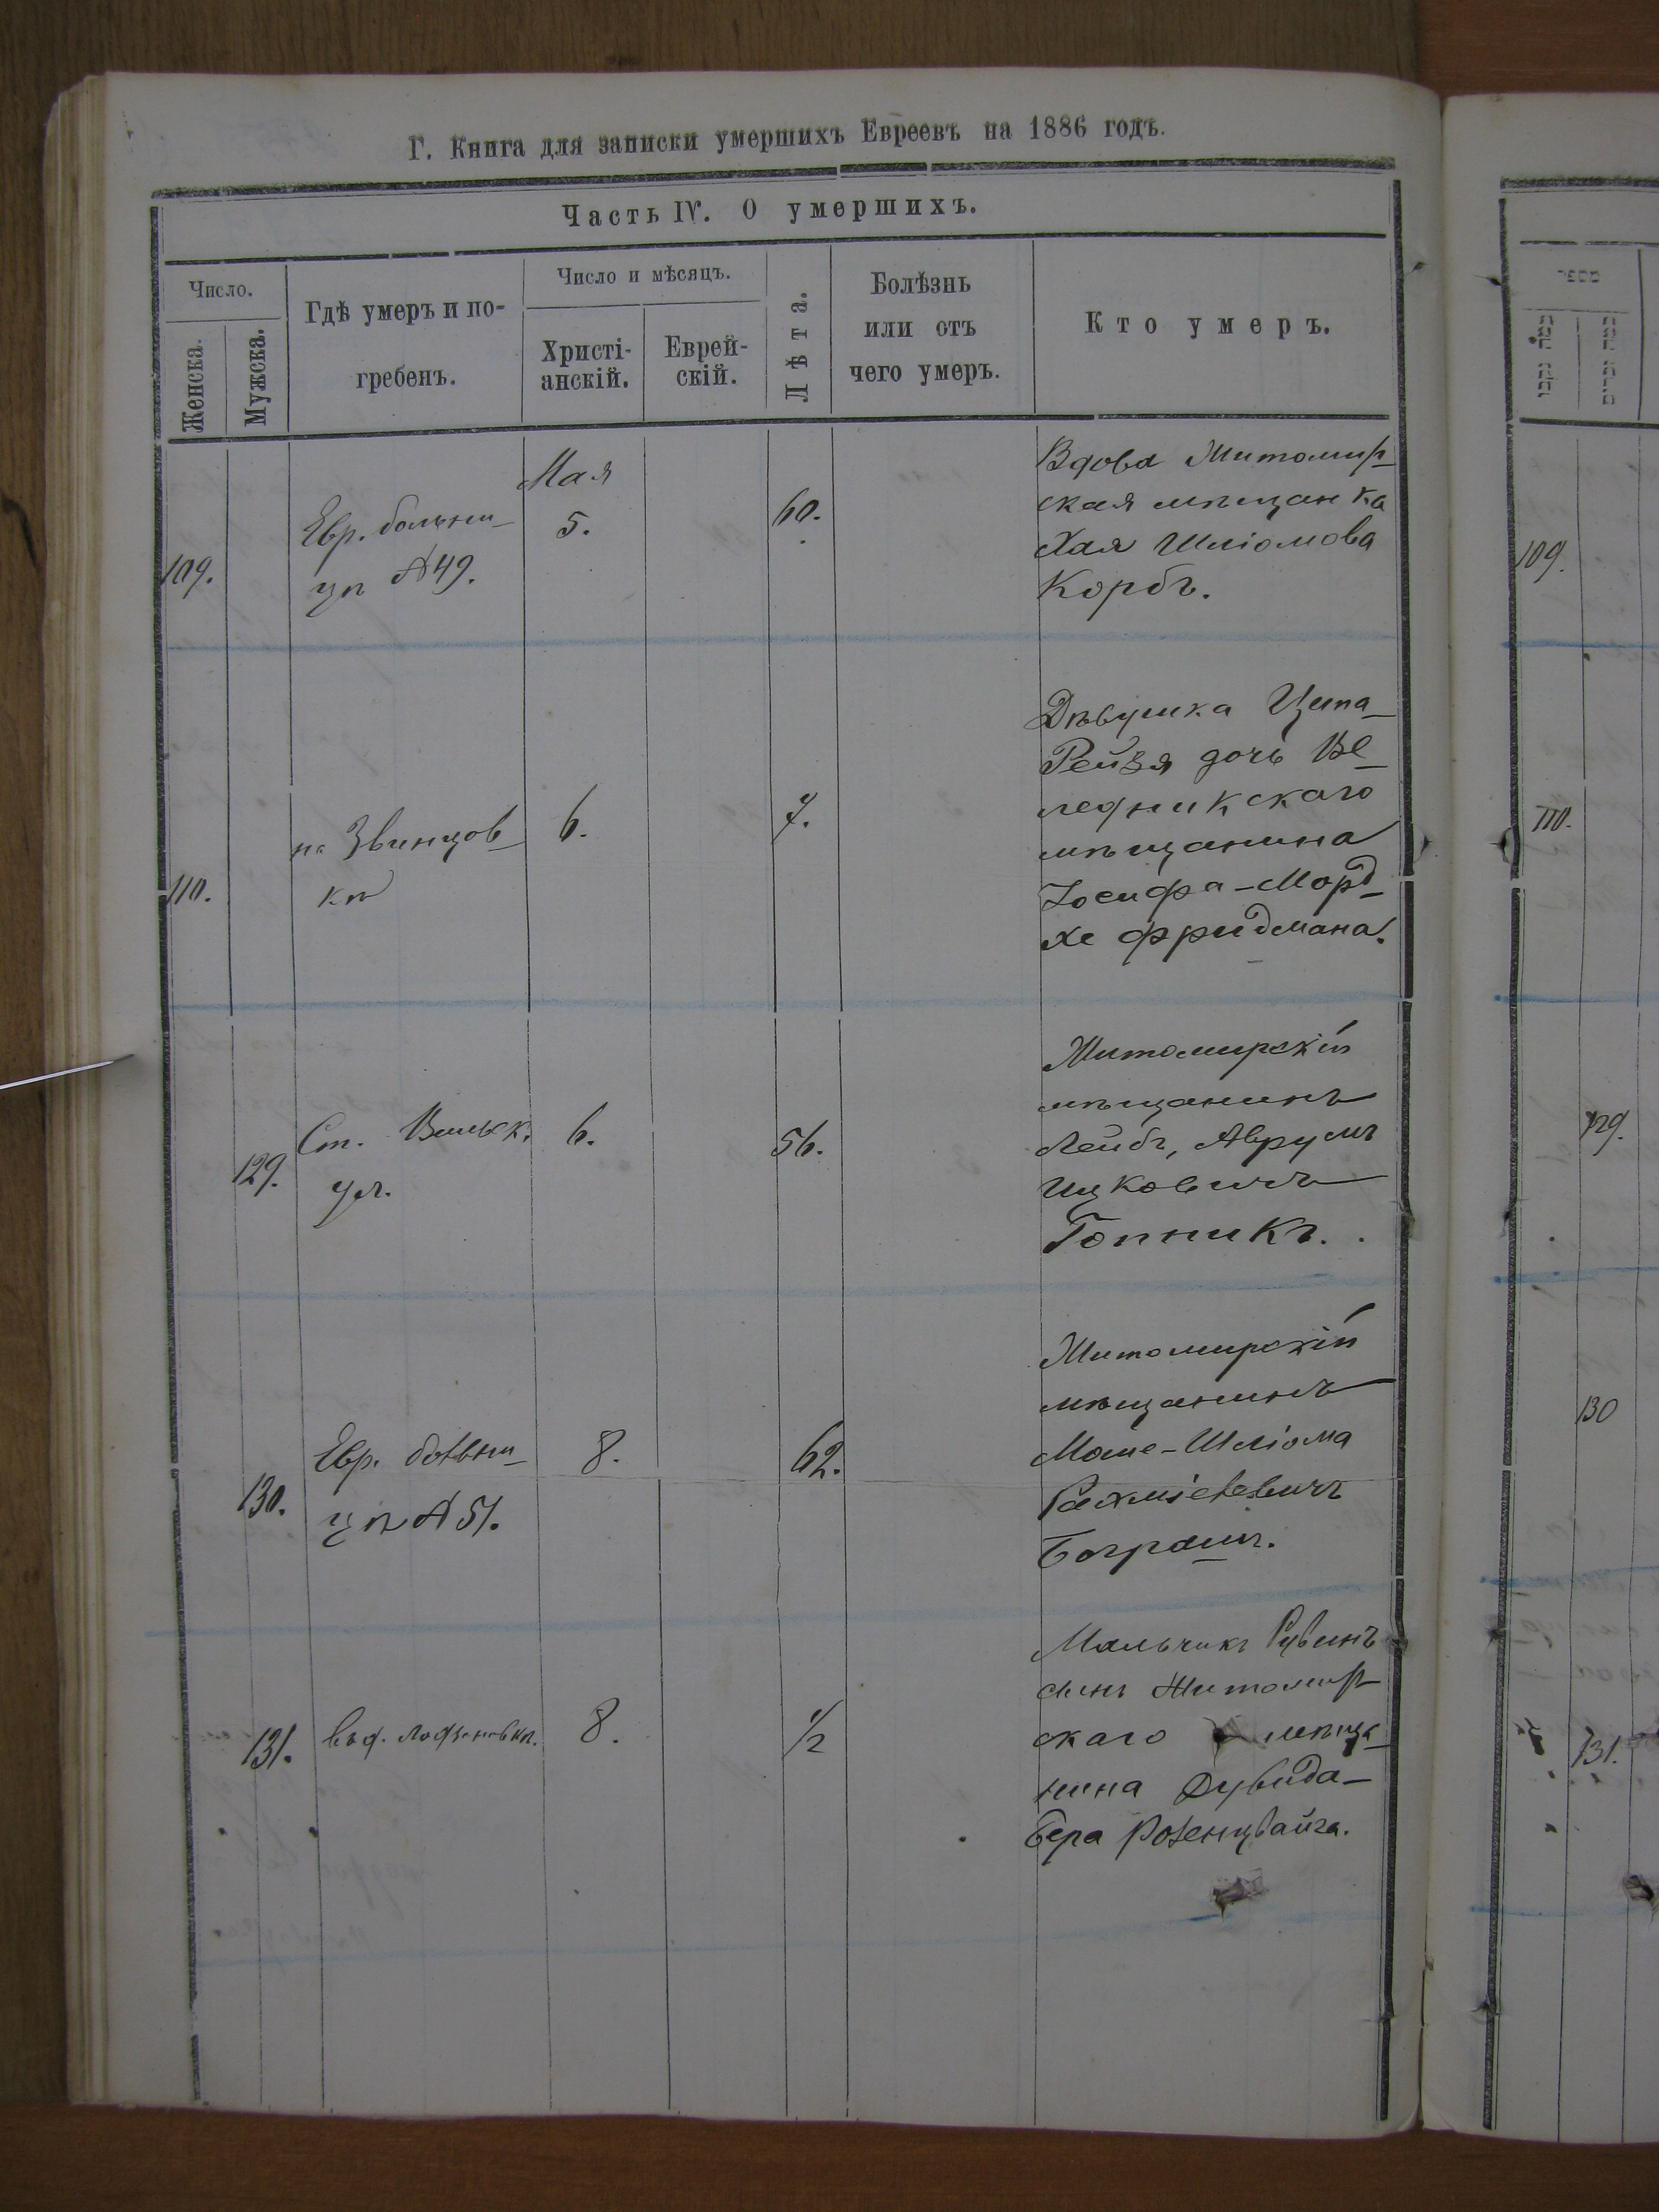 Г. Книга для записки умершихъ Евреевъ на 1886 годъ.
Часть IV. О умершихъ.
Число.
Женска.
Мужска.
Гдѣ умеръ и по-
гребенъ.
Число и мѣсяцъ.
Христі-
анскій.
Еврей-
скій.
Лѣта.
Болѣзнь
или отъ
чего умеръ.
Кто умеръ.
109.
Евр. больни-
цѣ № 49.
Мая
5.
60.
Вдова Житомир-
ская мѣщанка
Хая Шліомова
Корбъ.
109.
110.
на
кѣ
6.
7.
Дѣвушка Ципа-
Рейзя дочь Ве-
ледникскаго
мѣщанина
Іосифа-Морд-
хе Фридмана.
110.
129.
Ст. Вильск.
ул.
6.
56.
Житомирскій
мѣщанинъ
Лейбъ, Аврумъ
Ицковичъ
Гопникъ.
129.
130.
Евр. больни-
цѣ № 51.
8.
62.
Житомирскій
мѣщанинъ
Моше-Шліома
Рахміелевичъ
130
131.
8.
1/2
Мальчикъ Рувинъ
сынъ Житомир-
скаго мѣща-
нина Дувида-
Бера Розенцвайга.
131.